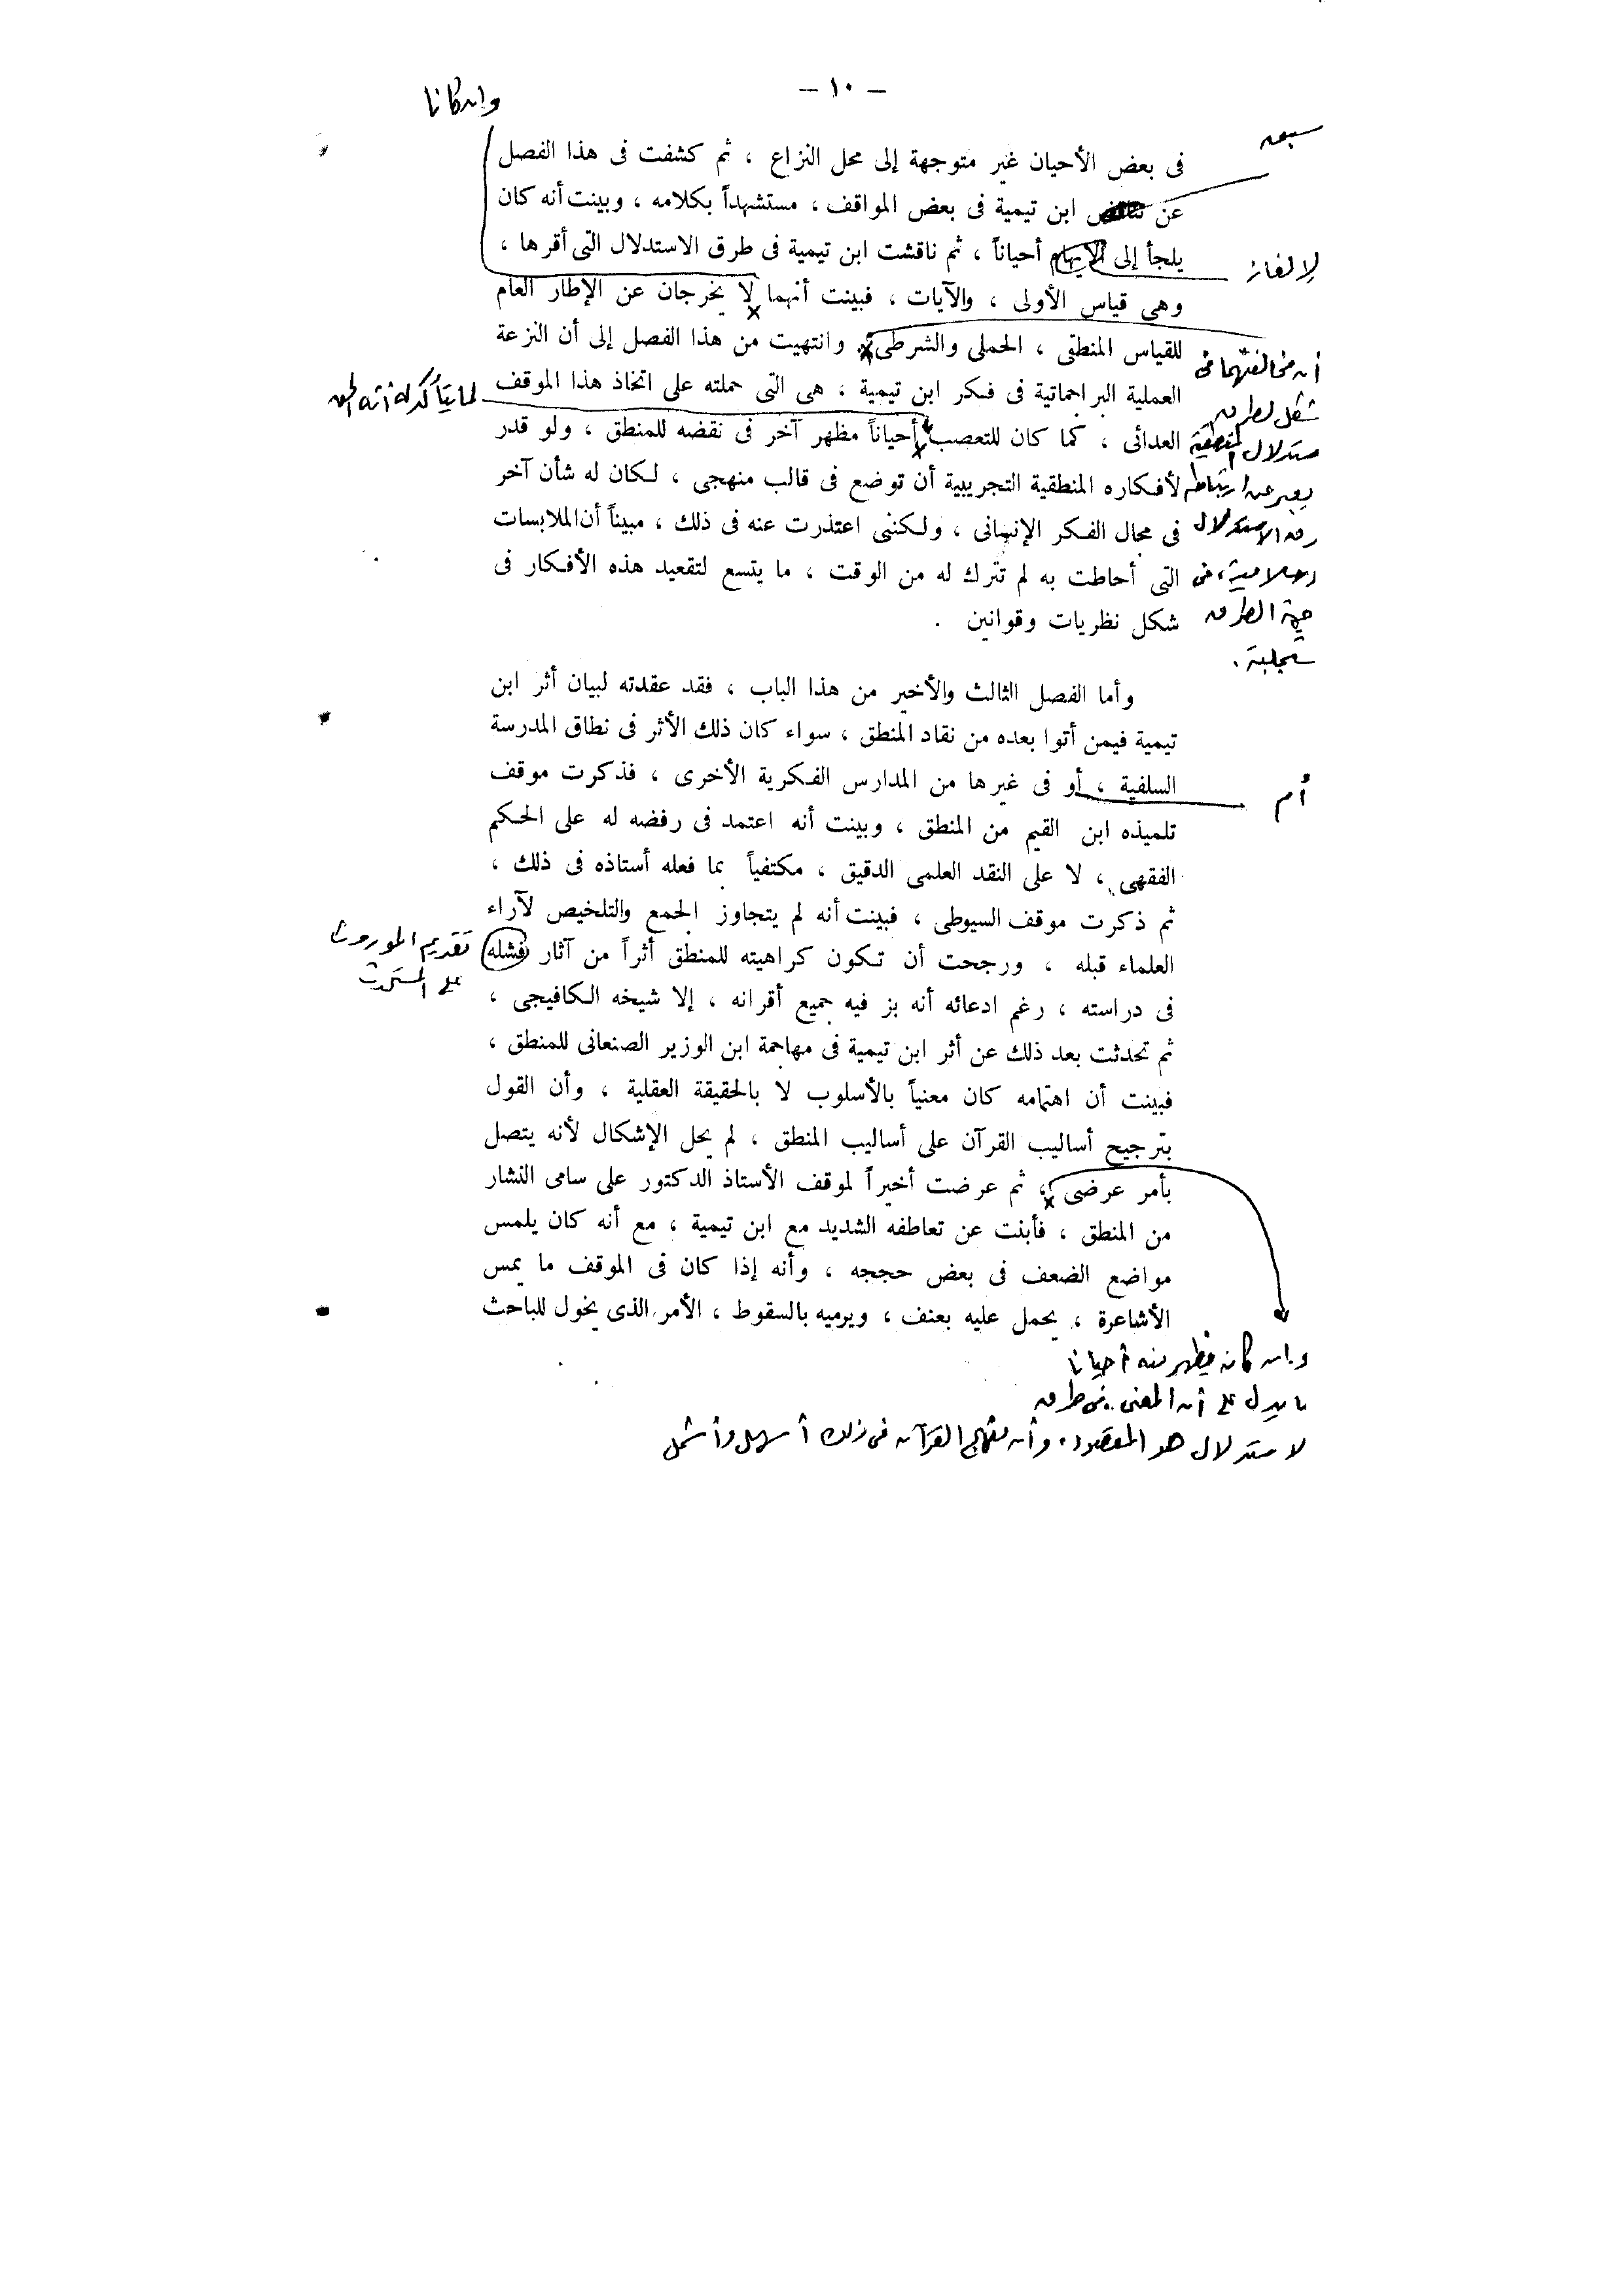 — ١٠ —
وإن كانا
فى بعض الأحيان غير متوجهة إلى محل النزاع ، ثم كشفت فى هذا الفصل
عن ابن تيمية فى بعض المواقف ، مستشهداً بكلامه ، وبينت أنه كان
يلجأ إلى الإيهام أحياناً ، ثم ناقشت ابن تيمية فى طرق الاستدلال التى أقرها ،
لإلغاز
وهى قياس الأولى ، والآيات ، فبينت أنهما لا يخرجان عن الإطار العام
للقياس المنطقى ، الحملى والشرطى ، وانتهيت من هذا الفصل إلى أن النزعة
أن مخالفتهما فى
العملية البراجماتية فى فكر ابن تيمية ، هى التى حملته على اتخاذ هذا الموقف
شكل لطرق
العدائى ، كما كان للتعصب أحياناً مظهر آخر فى نقضه للمنطق ، ولو قدر
ستدلال المنطقية
لأفكاره المنطقية التجريبية أن توضع فى قالب منهجى ، لكان له شأن آخر
يعبر عن ارتباط
فى مجال الفكر الإنسانى ، ولكننى اعتذرت عنه فى ذلك ، مبيناً أن الملابسات
رق الاستدلال
التى أحاطت به لم تترك له من الوقت ، ما يتسع لتقعيد هذه الأفكار فى
شكل نظريات وقوانين .
الطرق
وأما الفصل الثالث والأخير من هذا الباب ، فقد عقدته لبيان أثر ابن
تيمية فيمن أتوا بعده من نقاد المنطق ، سواء كان ذلك الأثر فى نطاق المدرسة
السلفية ، أو فى غيرها من المدارس الفكرية الأخرى ، فذكرت موقف
أم
تلميذه ابن القيم من المنطق ، وبينت أنه اعتمد فى رفضه له على الحكم
الفقهى ، لا على النقد العلمى الدقيق ، مكتفياً بما فعله أستاذه فى ذلك ،
ثم ذكرت موقف السيوطى ، فبينت أنه لم يتجاوز الجمع والتلخيص لآراء
العلماء قبله ، ورجحت أن تكون كراهيته للمنطق أثراً من آثار فشله
تقديم الموروث
على المستحدث
فى دراسته ، رغم ادعائه أنه بز فيه جميع أقرانه ، إلا شيخه الكافيجى ،
ثم تحدثت بعد ذلك عن أثر ابن تيمية فى مهاجمة ابن الوزير الصنعانى للمنطق ،
فبينت أن اهتمامه كان معنياً بالأسلوب لا بالحقيقة العقلية ، وأن القول
بترجيح أساليب القرآن على أساليب المنطق ، لم يحل الإشكال لأنه يتصل
بأمر عرضى ، ثم عرضت أخيراً لموقف الأستاذ الدكتور على سامى النشار
من المنطق ، فأبنت عن تعاطفه الشديد مع ابن تيمية ، مع أنه كان يلمس
مواضع الضعف فى بعض حججه ، وأنه إذا كان فى الموقف ما يمس
الأشاعرة ، يحمل عليه بعنف ، ويرميه بالسقوط ، الأمر الذى يخول للباحث
وإن كان يظهر منه أحيانا
ما يدل على أن المعنى فى طرق
لاستدلال هو المقصود ، وأن منهج القرآن فى ذلك أسهل وأشمل